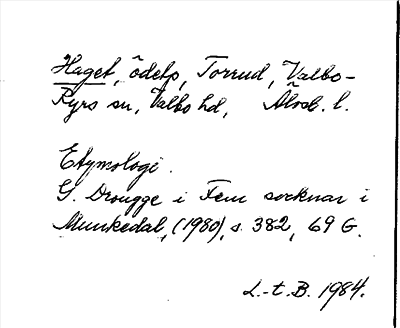 Haget, ödetp, Torrud, Valbo-
Ryrs sn, Valbo hd, Älvsb. l.
Etymologi.
G. Drougge i Fem socknar i
Munkedal, (1980), s. 382, 69 G.
L.-t. B. 1984.